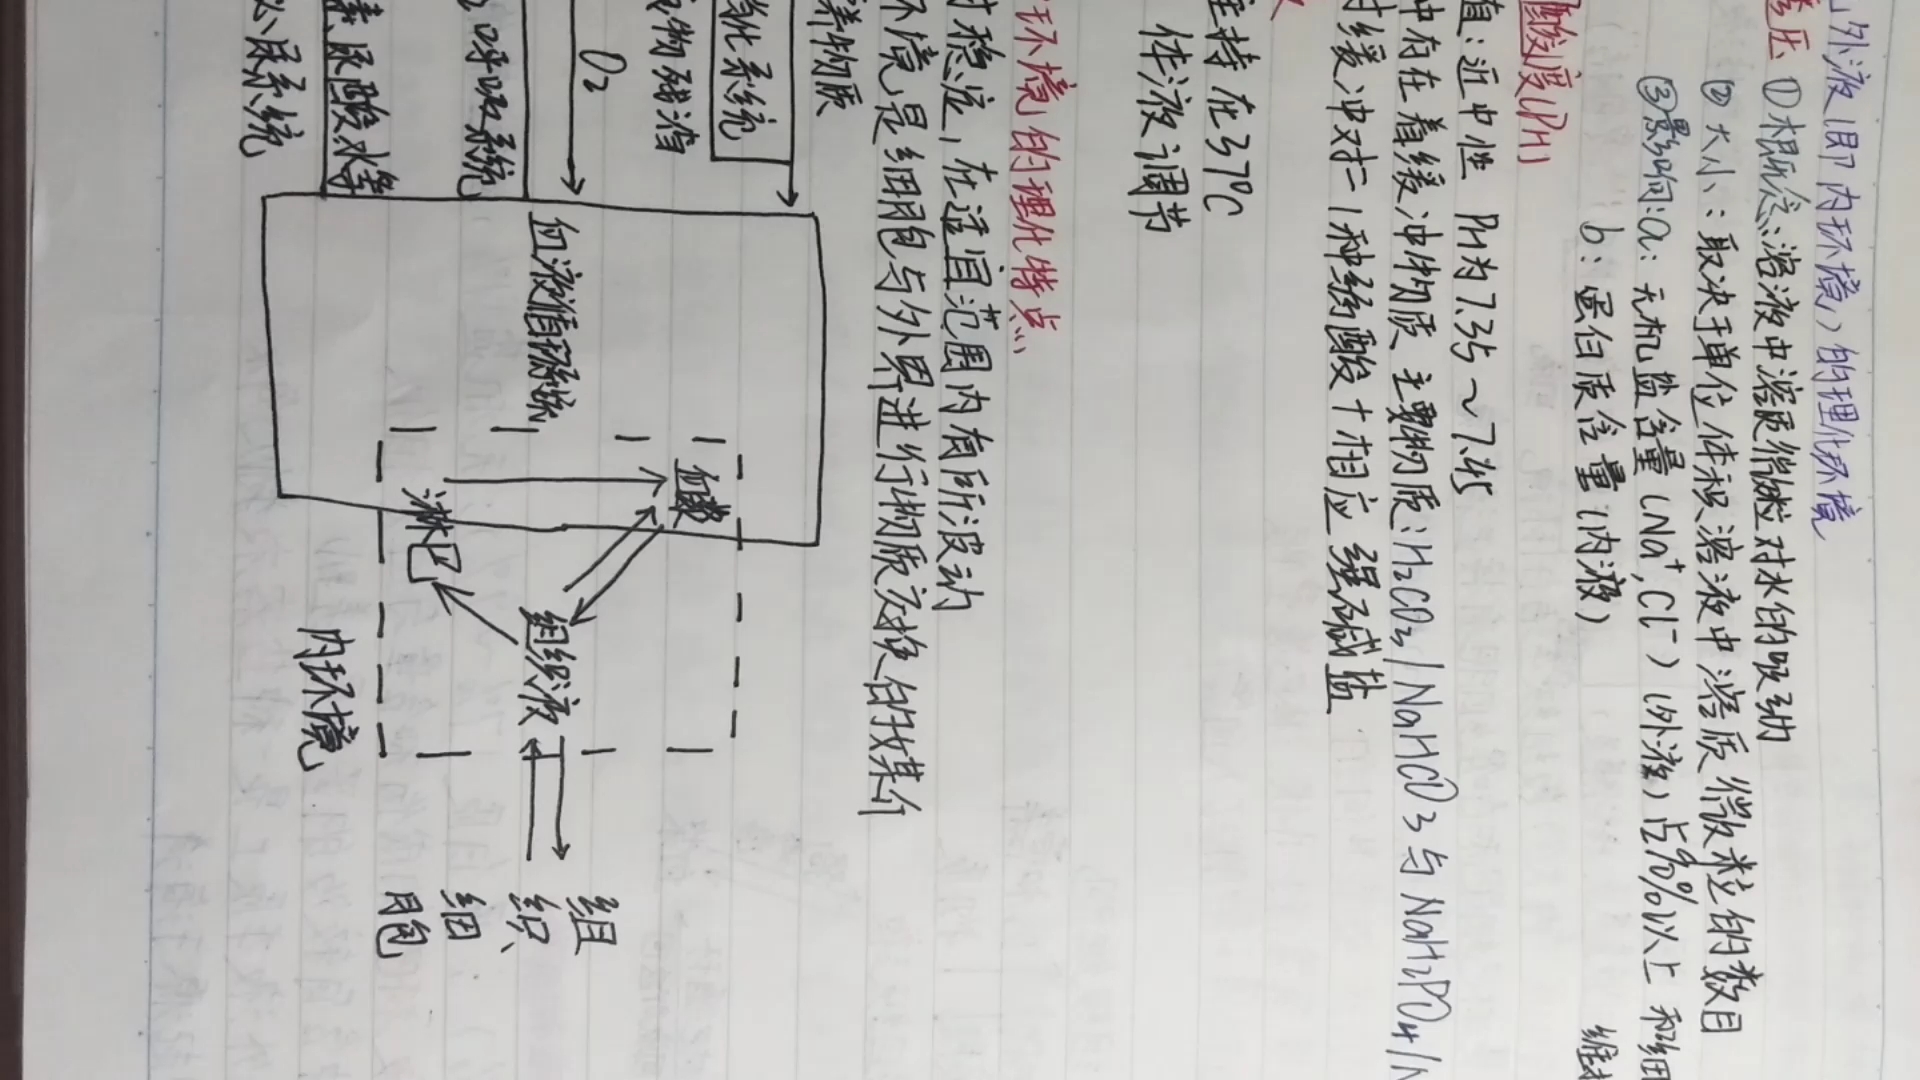 外液(即内环境)的理化环境
透压 ①概念:溶液中溶质微粒对水的吸引
②大小:取决于单位体积溶液中溶质微粒的数目
③影响:a:无机盐含量(Na⁺,Cl⁻)(外液)占90%以上 和细
b:蛋白质含量(内液) 维持
酸度(PH)
值:近中性 PH为7.35~7.45
中存在着缓冲物质,主要物质:H₂CO₃/NaHCO₃与NaH₂PO₄/N
对缓冲对=1种弱酸+相应强碱盐
维持在37℃
体液调节
环境的理化特点
对稳定,在适宜范围内有所波动
环境是细胞与外界进行物质交换的媒介
养物质
化系统
物残渣
O₂
呼吸系统
尿酸、水等
泌尿系统
血液循环系统
血浆
淋巴
组织液
内环境
组织细胞